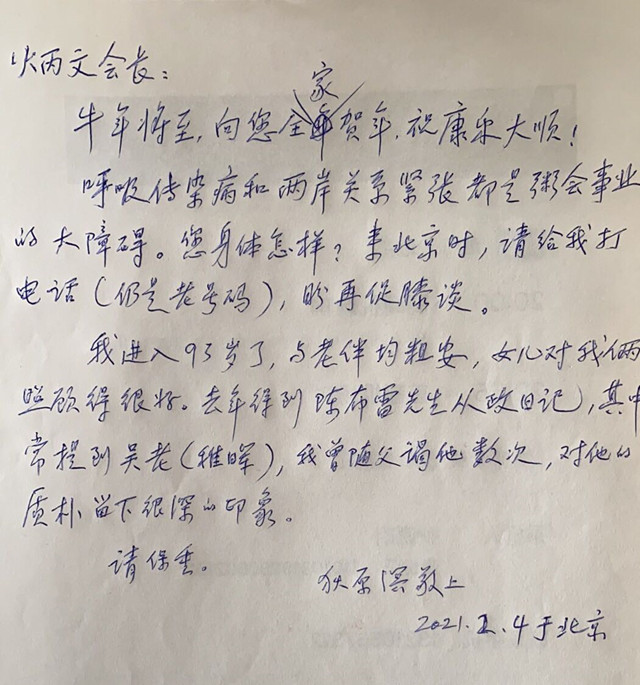 炳文会长:
家
牛年将至,向您全贺年,祝康乐大顺!
呼吸传染病和两岸关系紧张都是粥会事业
的大障碍。您身体怎样?来北京时,请给我打
电话(仍是老号码),盼再促膝谈。
我进入93岁了,与老伴均粗安,女儿对我俩
照顾得很好。去年得到陈布雷先生从政日记,其中
常提到吴老(稚晖),我曾随父谒他数次,对他的
质朴留下很深的印象。
请保重。
狄原溟敬上
2021.2.4于北京